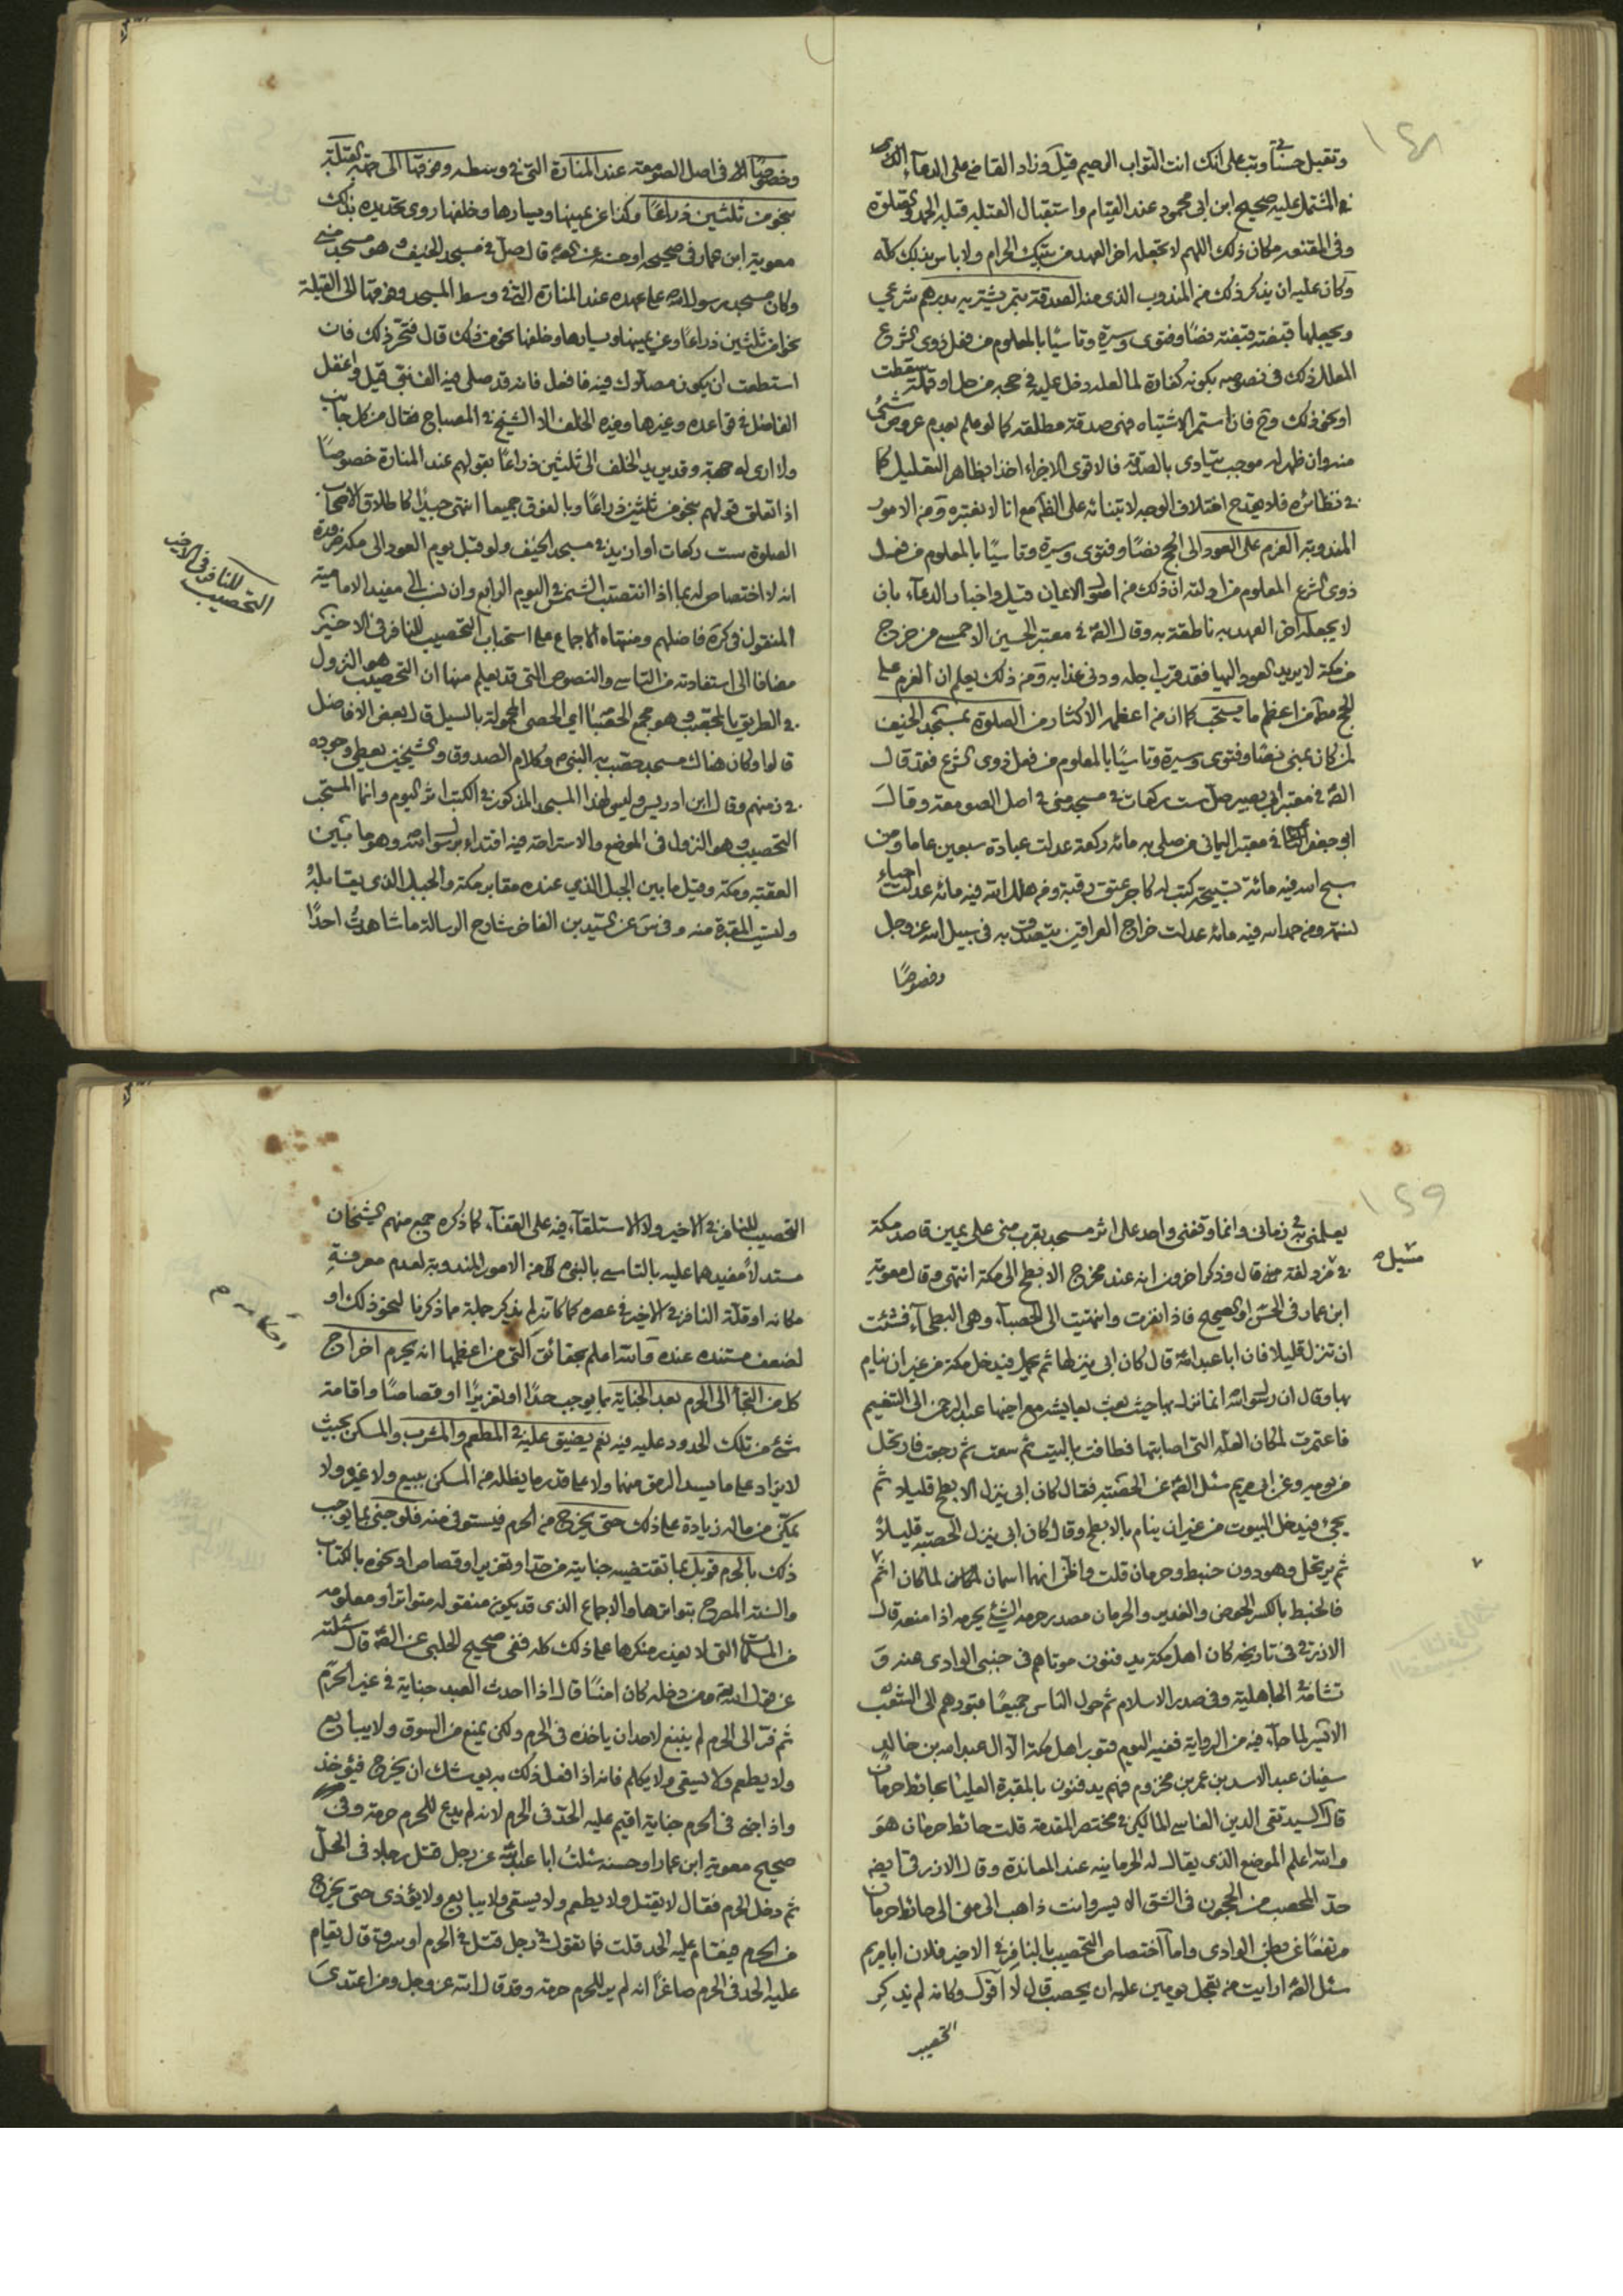 ١٤٨
وتقبل حسناتي وتب على انك انت التواب الرحيم قيل وزاد القاضي على الدعاء الذي
في المشتمل عليه صحيح ابن ابي محمود عند القيام واستقبال القبلة قبله الحمد والصلوة
وفي المقنعه مكان ذلك اللهم لا تجعله اخر العهد من بيتك الحرام ولا باس بذلك كله
وكان عليه ان يذكر ذلك من المندوب الذي منه الصدقة بتمر يشتريه بدرهم شرعي
ويجعلها قبضة قبضة نصا وفتوى وسيرة وتاسيا بالمعلوم من فعل ذوي الشرع
المعلل ذلك في نصوصه بكونه كفارة لما لعله دخل عليه في حجه من حك او قملة سقطت
او نحو ذلك وح فان استمر الاشتباه فهي صدقة مطلقه كما لو علم بعدم عروض شئ
منه وان ظهر له موجب يتادى بالصدقة فالاقوى الاجزاء اخذا بظاهر التعليل كما
في نظائره فلا يقدح اختلاف الوجه لابتنائه على الظاهر مع انا لا نعتبره ومن الامور
المندوبة العزم على العود الى الحج نصا وفتوى وسيرة وتاسيا بالمعلوم من فعل
ذوي الشرع المعلوم من ادلته ان ذلك من الاعيان قيل واخبار الدعاء بان
لا يجعله اخر العهد به ناطقة به وقال الص في معتبر الحسين الاحمسي من خرج
من مكة لا يريد العود اليها فقد قرب اجله ودنى عذابه ومن ذلك يعلم ان العزم على
الحج مط من اعظم ما يستحب كما ان من اعظمه الاكثار من الصلوة بمسجد الخيف
لمن كان بمنى نصا وفتوى وسيرة وتاسيا بالمعلوم من فعل ذوي الشرع فقد قال
الص في معتبر ابي بصير صل ست ركعات في مسجد منى في اصل الصومعه وقال
ابو جعفر في معتبر الثمالي من صلى به مائة ركعة عدلت عبادة سبعين عاما ومن
سبح الله فيه مائة تسبيحة كتب له كاجر عتق رقبة ومن هلل الله فيه مائة عدلت احياء
نسمة ومن حمد الله فيه مائة عدلت خراج العراقين يتصدق به في سبيل الله عز وجل
وخصوصا
وخصوصا في اصل الصومعة عند المنارة التي في وسطه وفوقها الى جهة القبلة
بنحو من ثلثين ذراعا وكذا عن يمينها ويسارها وخلفها روى تحديده بذلك
معوية ابن عمار في صحيحه او حسنه عن الص قال صل في مسجد الخيف وهو مسجد منى
وكان مسجد رسول الله على عهده عند المنارة التي في وسط المسجد وفوقها الى القبلة
نحوا من ثلثين ذراعا وعن يمينها ويسارها وخلفها نحو من ذلك قال فتحر ذلك فان
استطعت ان يكون مصلاك فيه فافعل فانه قد صلى فيه الف نبي قيل واغفل
الفاضل في قواعده وغيرها وفيه الخلف الا الشيخ في المصباح فقال من كل جانب
ولا ارى له جهة وقد يريد الخلف الى ثلثين ذراعا بقولهم عند المنارة خصوصا
اذا تعلق قولهم بنحو من ثلثين ذراعا وبالفوق جميعا انتهى جيدا كاطلاق الاصحاب
الصلوة ست ركعات او ازيد في مسجد الخيف ولو قبل يوم العود الى مكة ضرورة
انه لا اختصاص لها بما اذا انتصبت الشمس في اليوم الرابع وان نسب الى مفيد الامامية
المنقول في كرة فاضلهم ومنتهاه الاجماع على استحباب التحصيب للنافر في الاخير
مضافا الى استفادته من التاسي والنصوص التي قد يعلم منها ان التحصيب هو النزول
في الطريق بالمحصب وهو مجمع الحصباء اي الحصى المحمولة بالسيل قال بعض الافاضل
قالوا وكان هناك مسجد حصب به النبي وكلام الصدوق والشيخين يعطي وجوده
في زمنهم وقال ابن ادريس وليس لهذا المسجد المذكور في الكتب اثر اليوم وانما المستحب
التحصيب وهو النزول في الموضع والاستراحة فيه اقتداء برسول الله وهو ما بين
العقبة ومكة وقيل ما بين الجبل الذي عنده مقابر مكة والجبل الذي يقابله
وليست المقبرة منه وفي س عن السيد بن الفاخر شارح الرسالة ما شاهدت احدا
التحصيب للنافر في الاخير
١٤٩
يعلمني به في زماني وانما وقفني واحد على اثر مسجد بقرب منى على يمين قاصد مكة
في مسيل
قال وذكر اخرون انه عند مخرج الابطح الى مكة انتهى وقال معوية
ابن عمار في الحسن او الصحيح فاذا نفرت وانتهيت الى الحصباء وهي البطحاء فشئت
ان تنزل قليلا فان ابا عبد الله قال كان ابي ينزلها ثم يحمل فيدخل مكة من غير ان ينام
بها وقال ان رسول الله انما نزلها حيث بعث بعايشه مع اخيها عبد الرحمن الى التنعيم
فاعتمرت لمكان العلة التي اصابتها فطافت بالبيت ثم سعت ثم رجعت فارتحل
من يومه وعن ابي مريم سئل الص عن الحصبة فقال كان ابي ينزل الابطح قليلا ثم
يجئ فيدخل البيوت من غير ان ينام بالابطح وقال كان ابي ينزل الحصبة قليلا
ثم يرتحل وهو دون خبط وحرمان قلت واظن انهما اسمان لمكان اثم
فالخبط بالكسر الحوض والغدير والحرمان مصدر حرمه الشئ يحرمه اذا منعه قال
الازرقي في تاريخه كان اهل مكة يدفنون موتاهم في جنبي الوادي يمنة و
شامة في الجاهلية وفي صدر الاسلام ثم حول الناس جميعا قبورهم الى الشعب
الايسر لما جاء فيه من الرواية ففيه اليوم قبور اهل مكة الا ال عبد الله بن خالد
سفيان عبد الاسد بن عمر بن مخزوم فهم يدفنون بالمقبرة العليا بحائط حرمان
قال السيد تقي الدين الفاسي المالكي في مختصر المقدمة قلت حائط حرمان هو
والله اعلم الموضع الذي يقال له الخرمانيه عند المعابدة وقال الازرقي ايضا
حد المحصب من الحجون في الشق الايسر وانت ذاهب الى منى الى حائط حرمان
مرتفعا عن بطن الوادي واما اختصاص التحصيب بالنافر في الاخير فلان ابا مريم
سئل الص ارايت من تعجل يومين عليه ان يحصب قال لا اقول وكانه لم يذكر
التحصيب
التحصيب للنافر في الاخير ولا الاستلقاء فيه على القفاء كما ذكره جمع منهم الشيخان
مستدلا مفيدهما عليه بالتاسي بالنبي من الامور المندوبة لعدم معرفة
مكانه او قلة النافر في الاخير في عصره كما كانه لم يذكر جملة مما ذكرنا لنحو ذلك او
لضعف مستنده عنده والله اعلم بحقائق التي من اعظمها انه يحرم اخراج
كل من التجأ الى الحرم بعد الجناية بما يوجب حدا او تعزيرا او قصاصا واقامة
شئ من تلك الحدود عليه فيه نعم يضيق عليه في المطعم والمشرب والمسكن بحيث
لا يزاد على ما يسد الرمق منها ولا على قدر ما يظله من المسكن ببيع ولا غيره ولا
يمكن من ماله زيادة على ذلك حتى يخرج من الحرم فيستوفى منه فلو جنى بما يوجب
ذلك بالحرم قوبل بما تقتضيه جنايته من حد او تعزير او قصاص او نحوه بالكتاب
والسنة المصرح بتواترها والاجماع الذي قد يكون منقوله متواترا ومعلومه
من المسلمات التي لا يعذر منكرها على ذلك كله ففي صحيح الحلبي عن الص قال سئلته
عن قول الله ومن دخله كان امنا قال اذا احدث العبد جناية في غير الحرم
ثم فر الى الحرم لم ينبغ لاحد ان ياخذه في الحرم ولكن يمنع من السوق ولا يبايع
ولا يطعم ولا يسقى ولا يكلم فانه اذا فعل ذلك به يوشك ان يخرج فيؤخذ
واذا جنى في الحرم جناية اقيم عليه الحد في الحرم لانه لم يدع للحرم حرمة وفي
صحيح معوية ابن عمار او حسنه سئلت ابا عبد الله عن رجل قتل رجلا في الحل
ثم دخل الحرم فقال لا يقتل ولا يطعم ولا يسقى ولا يبايع ولا يؤذى حتى يخرج
من الحرم فيقام عليه الحد قلت فما تقول في رجل قتل في الحرم او سرق قال يقام
عليه الحد في الحرم صاغرا انه لم ير للحرم حرمة وقد قال الله عز وجل ومن اعتدى